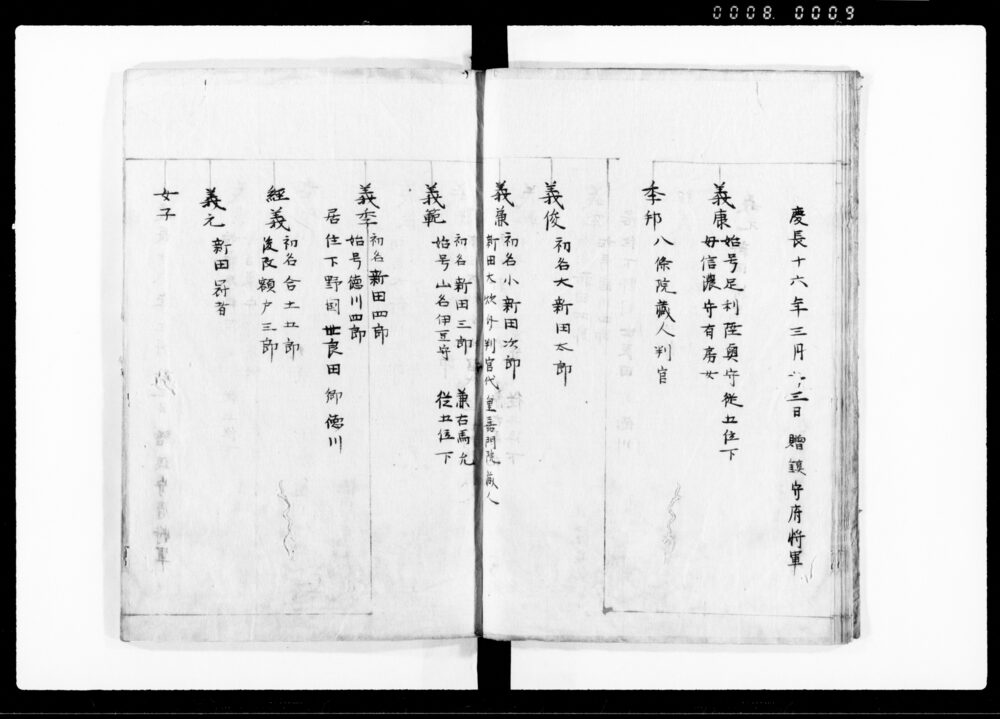 0008 0009
慶長十六年三月廿三日贈鎮守府将軍
義康 始号足利陸奥守従五位下
母信濃守有房女
季邦 八條院蔵人判官
義俊 初名大新田太郎
義兼 初名小新田次郎
新田大炊介判官代皇嘉門院蔵人
義範 初名新田三郎 兼右馬允
始号山名伊豆守 従五位下
義季 初名新田四郎
始号徳川四郎
居住下野国世良田郷徳川
経義 初名合土五郎
後改額戸三郎
義元 新田冠者
女子